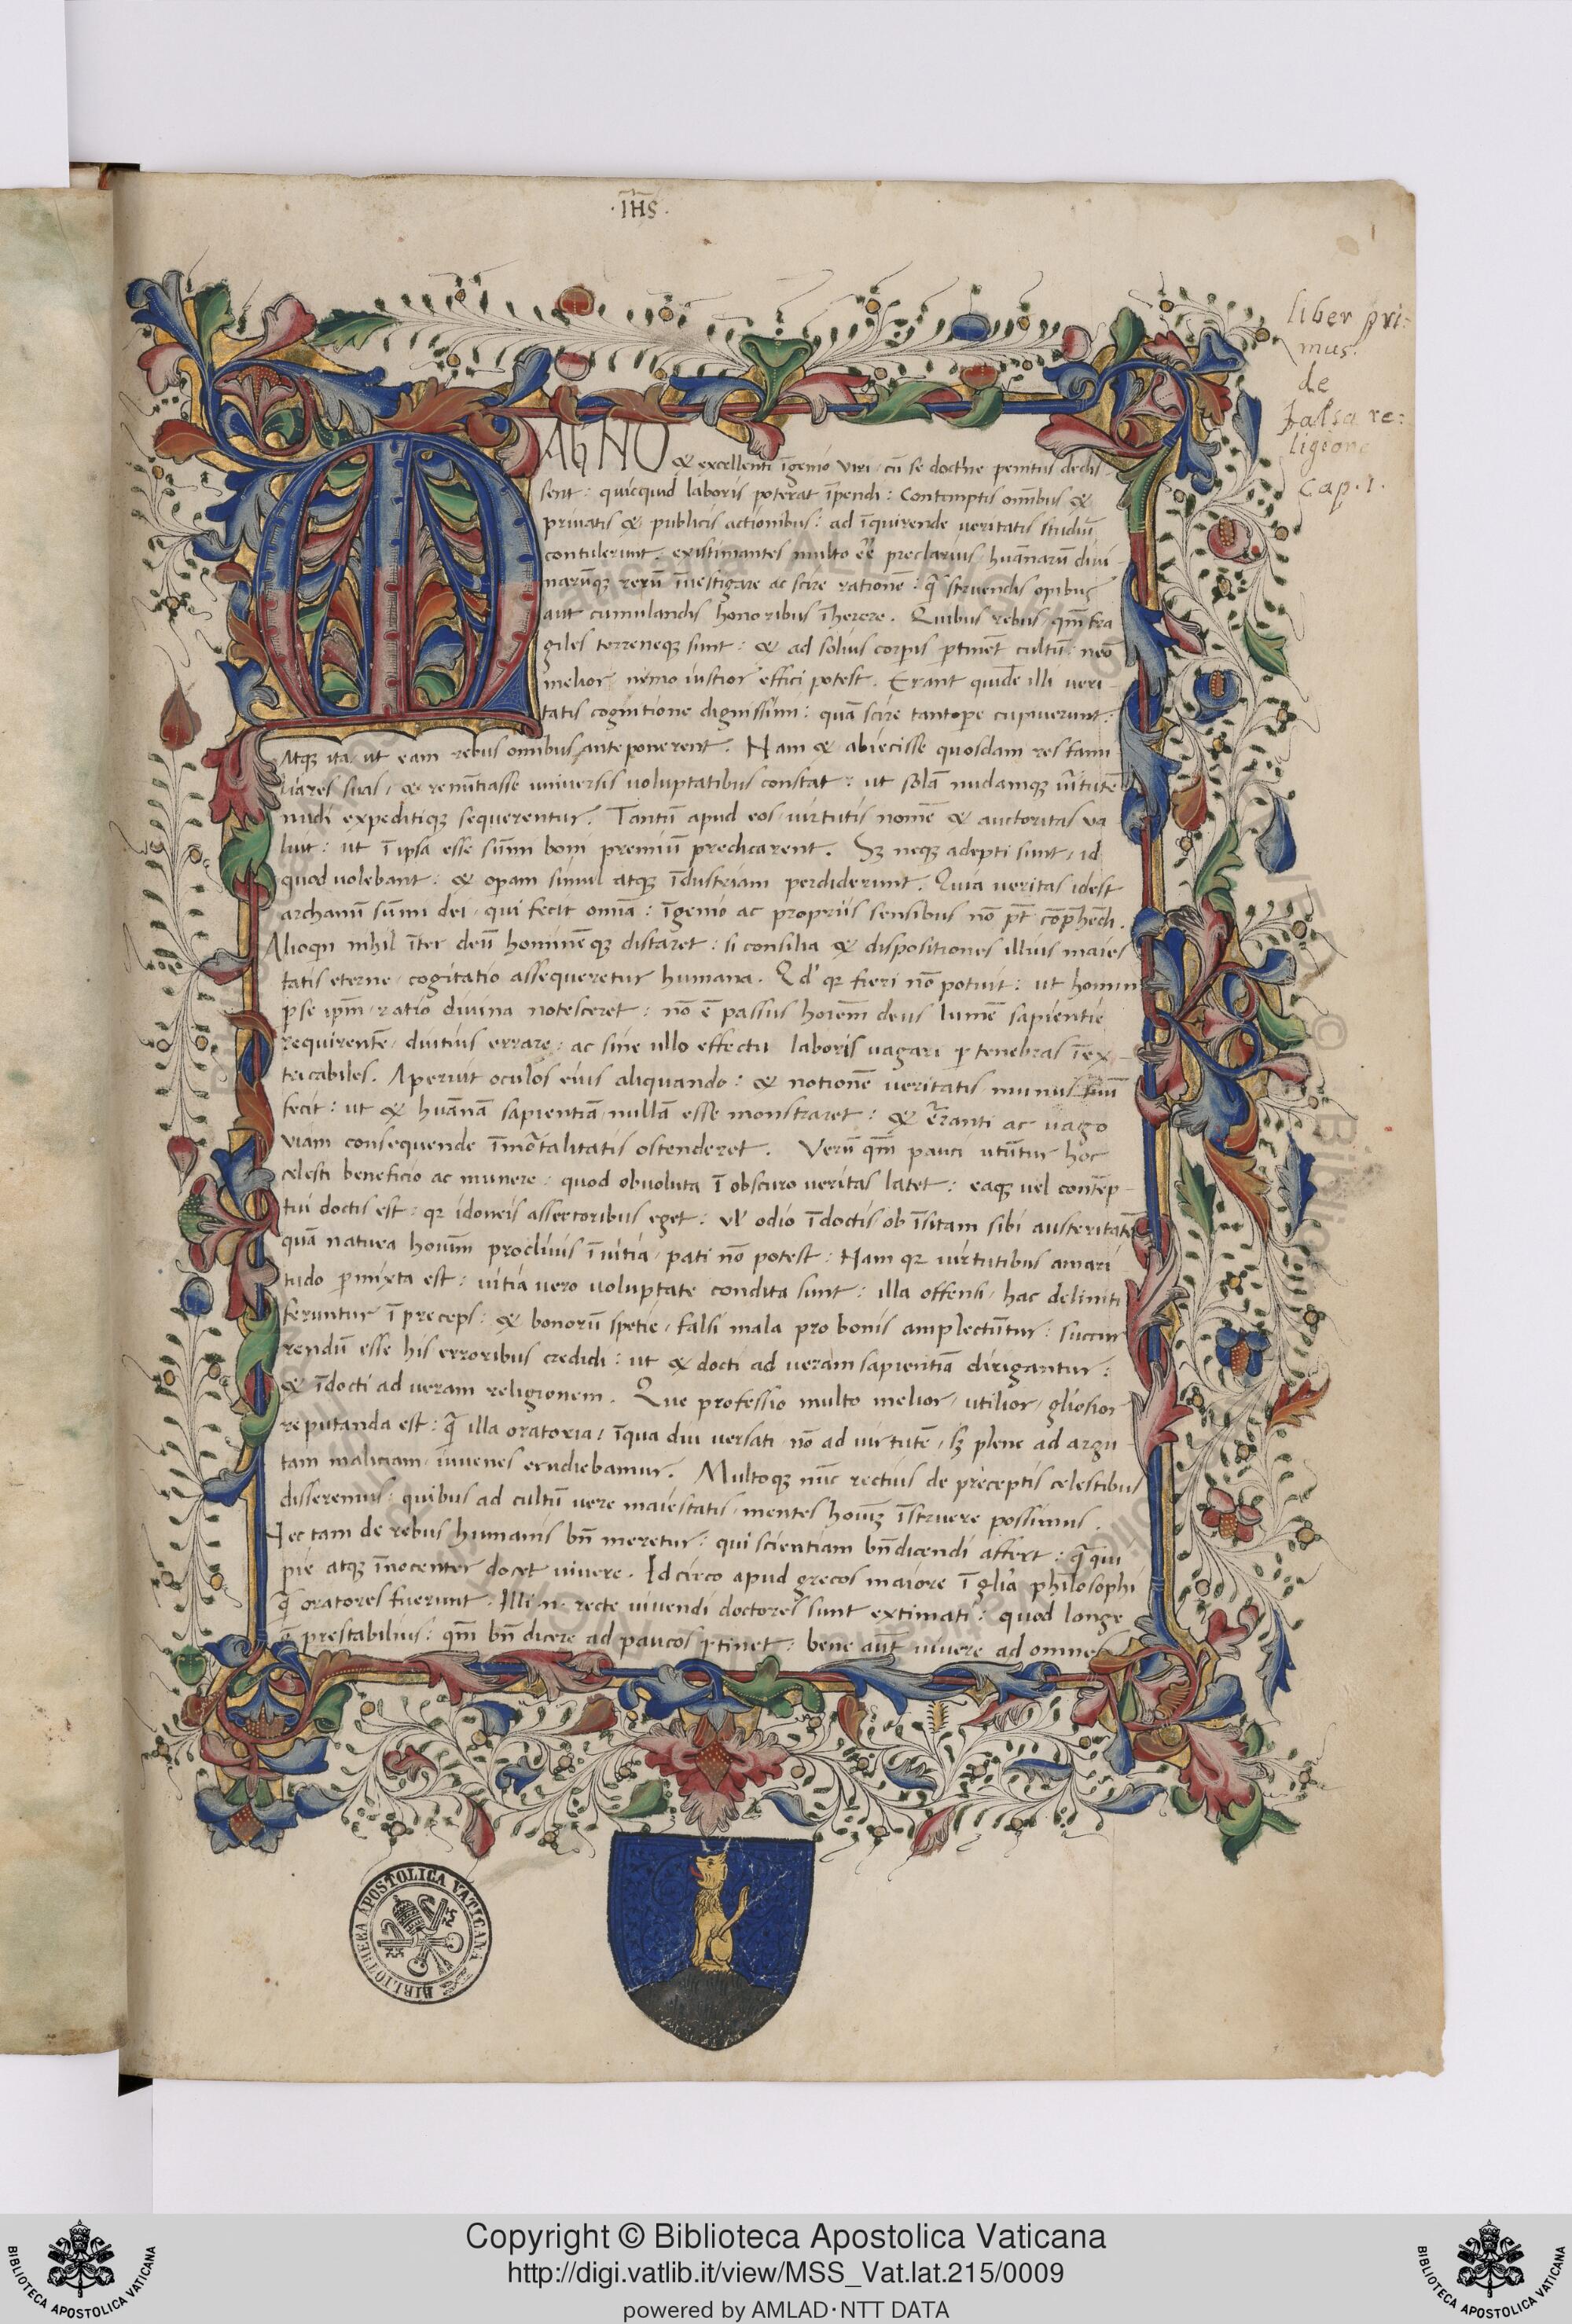 ·IHS·
1
liber pri:
mus.
de
falsa re:
ligione
cap. 1.
MAGNO & excellenti īgenio viri, cū se doctrīe penitus dedis
sent: quicquid laboris poterat īpendi: Contemptis omībus &
privatis & publicis actionibus: ad īquirende veritatis studiū
contulerunt, existimantes multo eē preclarius, huānarū divi
narūqȝ rerū īvestigare ac scire rationē: q̄ struendis opibus
aut cumulandis honoribus īherere. Quibus rebus, qm̄ fra
giles terreneqȝ sunt: & ad solius corpis ꝑtinēt cultū: neō
melior nemo iustior effici potest. Erant quidē illi veri
tatis cognitione dignissimi: quā scire tantope cupiverunt:
Atqȝ ita, ut eam rebus omībus anteponerent. Nam & abiecisse quosdam res fami
liares suas, & renūtiasse universis voluptatibus constat: ut solā nudamqȝ virtutē
nudi expeditiqȝ sequerentur. Tantū apud eos, virtutis nomē & auctoritas va
luit: ut ī ipsa esse sūmi boni premiū predicarent. Sȝ neqȝ adepti sunt, id
quod volebant: & opam simul atqȝ īdustriam perdiderunt. Quia veritas idest
archanū sūmi dei, qui fecit omīa: īgenio ac propriis sensibus nō pt̄ cōp̄hēdi.
Alioqn nihil īter deū hominēqȝ distaret: si consilia & dispositiones illius maies
tatis eterne, cogitatio assequeretur humana. Qd' qꝛ fieri nō potuit: ut homini
ꝑ se ipm̄, ratio divina notesceret: nō ē passus hoiem̄ deus lumē sapientie
requirentē, diutius errare, ac sine ullo effectu laboris vagari ꝑ tenebras īex
tricabiles. Aperuit oculos eius aliquando: & notionē veritatis munus suū
fecit: ut & huānā sapientiā nullā esse monstraret: & erranti ac vago
viam consequende īmortalitatis ostenderet. Verū qm̄ pauci utūtur hoc
celesti beneficio ac munere: quod obvoluta ī obscuro veritas latet: eaqȝ vel contēp
tui doctis est: qꝛ idoneis assertoribus eget: vl' odio īdoctis ob īsitam sibi austeritatē
quā natura hoium̄ proclivis ī vitia, pati nō potest: Nam qꝛ virtutibus amari
tudo ꝑmixta est: vitia vero voluptate condita sunt: illa offensi, hac deliniti
feruntur ī preceps: & bonorū spetie, falsi mala pro bonis amplectūtur: succur
rendū esse his erroribus credidi: ut & docti ad veram sapientiā dirigantur:
& īdocti ad veram religionem. Que professio multo melior, utilior, gl̄iosior
reputanda est: q̄ illa oratoria, īqua diu versati nō ad virtutē, sȝ plene ad argu
tam maliciam, iuvenes erudiebamur. Multoqȝ nūc rectius de preceptis celestibus
disseremus, quibus ad cultū vere maiestatis, mentes hoiūȝ īstruere possimus.
Nec tam de rebus humanis bn̄ meretur: qui scientiam bn̄dicendi affert: q̄ qui
pie atqȝ īnocenter docet vivere. Idcirco apud grecos maiore ī gl̄ia philosophi
q̄ oratores fuerunt. Illi .n. recte vivendi doctores sunt extimati: quod longe
ē prestabilius: qm̄ bn̄ dicere ad paucos ꝑtinet: bene aūt vivere ad omnes
BIBLIOTHECA APOSTOLICA VATICANA
Copyright © Biblioteca Apostolica Vaticana
http://digi.vatlib.it/view/MSS_Vat.lat.215/0009
powered by AMLAD·NTT DATA
BIBLIOTECA APOSTOLICA VATICANA
BIBLIOTECA APOSTOLICA VATICANA